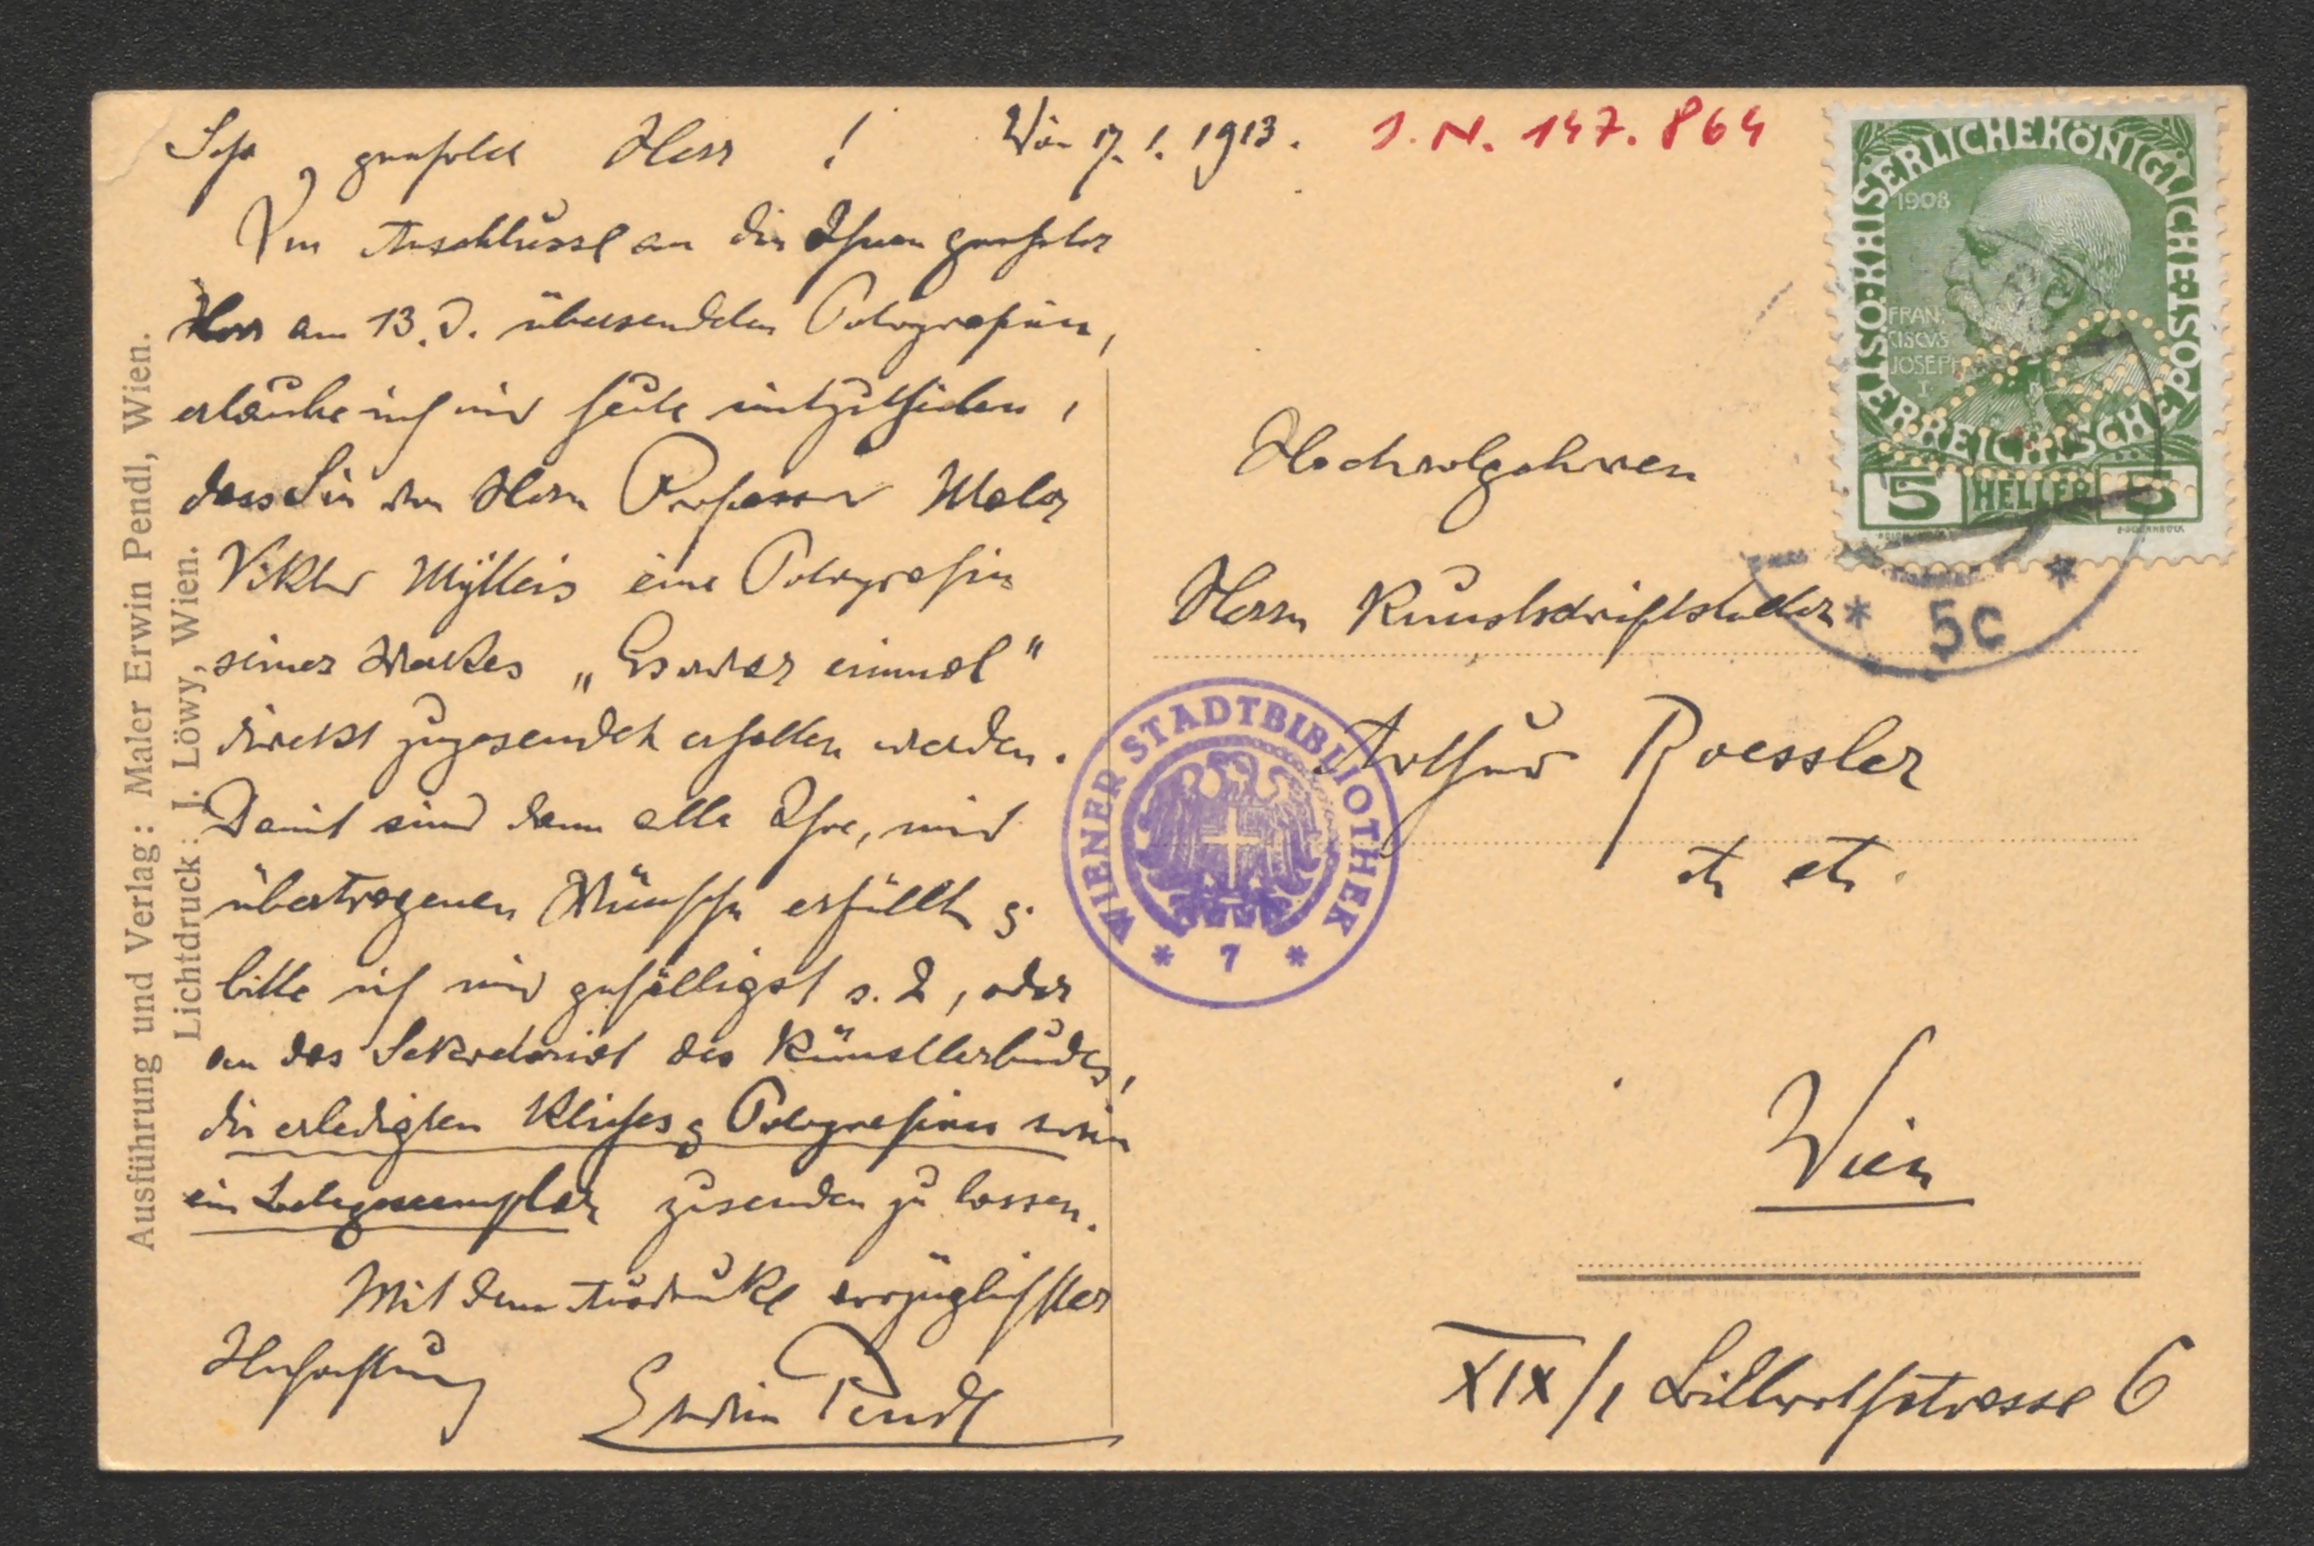 Sehr geehrter Herr!
Wien 17. 1. 1913.
J. N. 147.864
Im Anschlusse an die Ihnen geehrter
Herr am 13. d. übersendeten Fotografien,
erlaube ich mir heute mitzutheilen,
dass Sie von Herrn Professor Maler
Viktor Mytteis eine Fotografie
seines Werkes „Es war einmal“
direkt zugesendet erhalten werden.
Damit sind dann alle Ihre, mir
übertragenen Wünsche erfüllt &
bitte ich mir gefälligst s. Z, oder
an das Sekretariat des Künstlerbundes,
die erledigten Klischés & Fotografien sowie
ein Belegexemplar zusenden zu lassen.
Mit dem Ausdrucke vorzüglichster
Hochachtung
Erwin Pendl
Ausführung und Verlag: Maler Erwin Pendl, Wien.
Lichtdruck: J. Löwy, Wien.
KAISERLICHE KÖNIGLICHE ÖSTERREICHISCHE POST
1908
FRAN
CISCVS
JOSEPH
I.
5 HELLER 5
* 5c *
Hochwolgebohren
Herrn Kunstschriftsteller
Arthur Roessler
etc etc.
WIENER STADTBIBLIOTHEK
* 7 *
Wien
XIX/1 Billrothstrasse 6